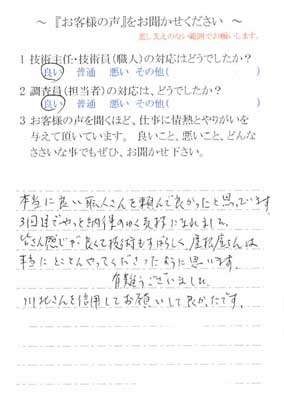 ～『お客様の声』をお聞かせください ～
差し支えのない範囲でお願いします。
1 技術主任・技術員（職人）の対応はどうでしたか？
良い 普通 悪い その他（ ）
2 調査員（担当者）の対応は、どうでしたか？
良い 普通 悪い その他（ ）
3 お客様の声を聞くほど、仕事に情熱とやりがいを
与えて頂いています。 良いこと、悪いこと、どんな
ささいな事でもぜひ、お聞かせ下さい。
本当に良い職人さんを頼んで良かったと思っています
3回目でやっと納得のゆく
皆さん感じが良くて技術もすばらしく、屋根屋さんは
本当にとことんやってくださったように思います。
有難うございました
川北さんを信用してお願いして良かったです。